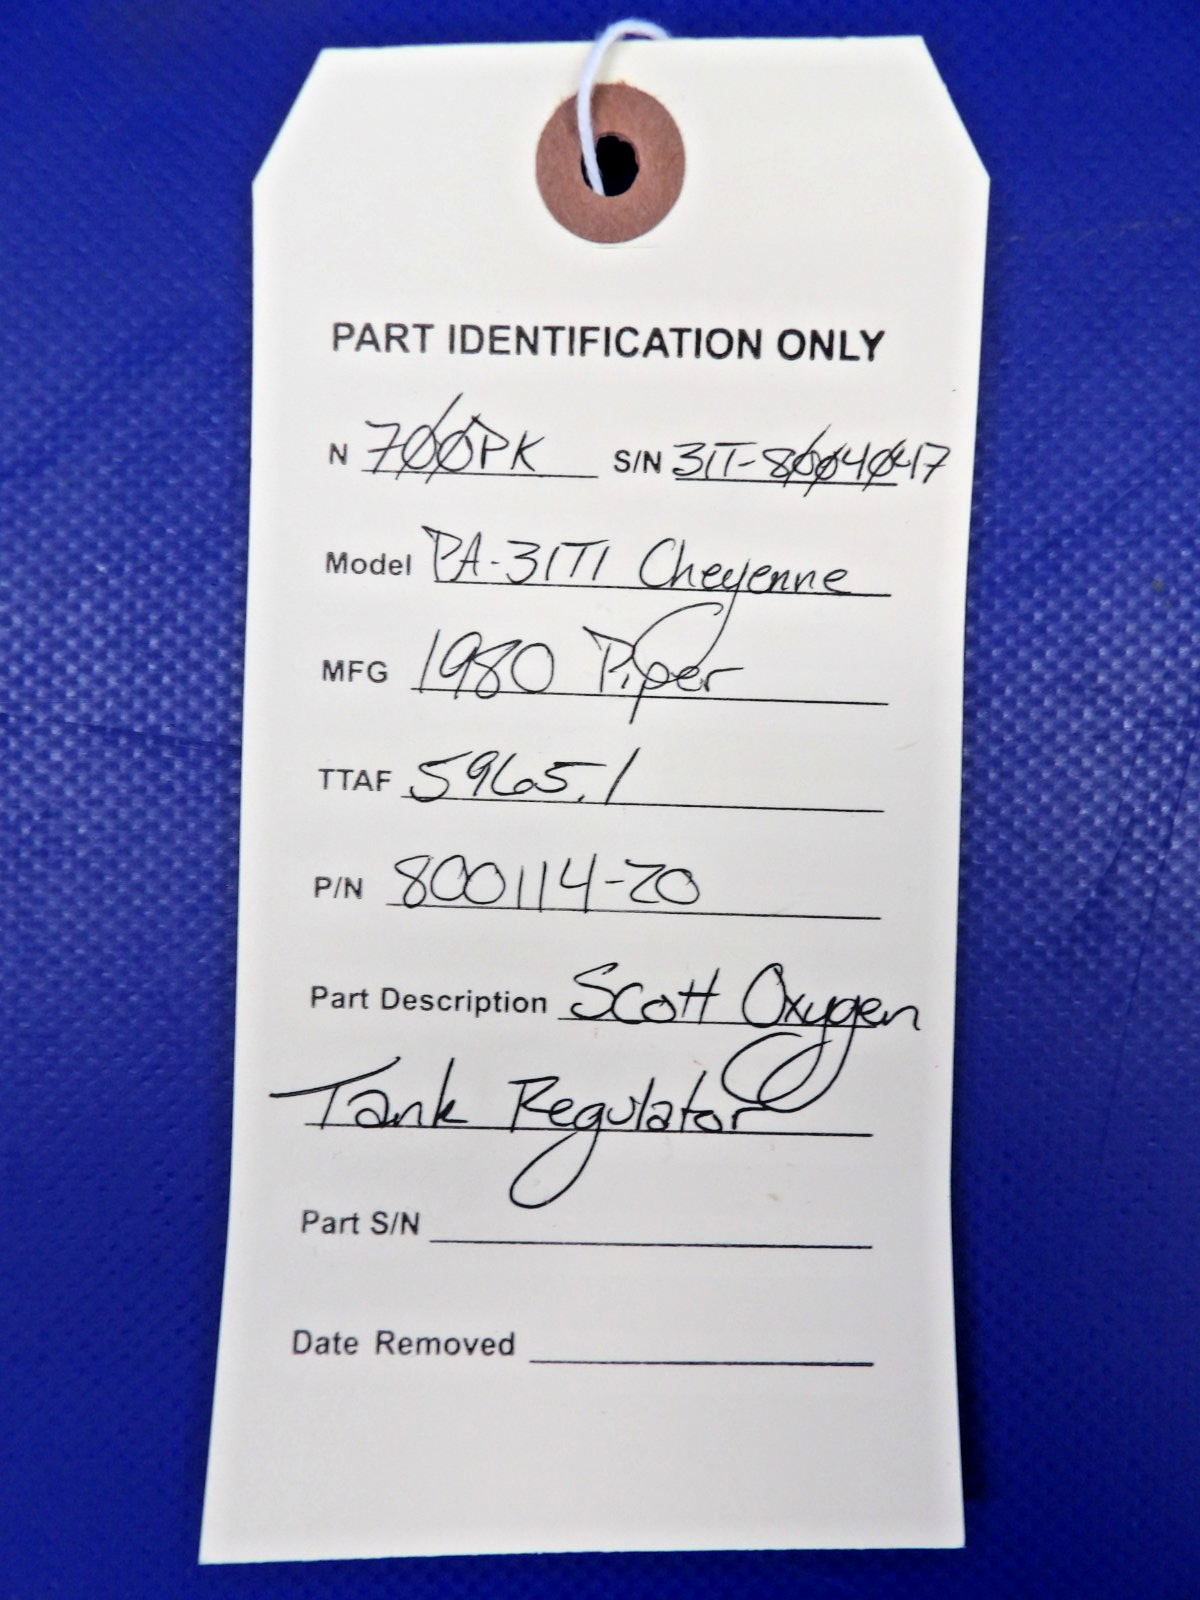 PART IDENTIFICATION ONLY
N 700PK S/N 31T-8004047
Model PA-31T1 Cheyenne
MFG 1980 Piper
TTAF 5965.1
P/N 800114-20
Part Description Scott Oxygen
Tank Regulator
Part S/N
Date Removed